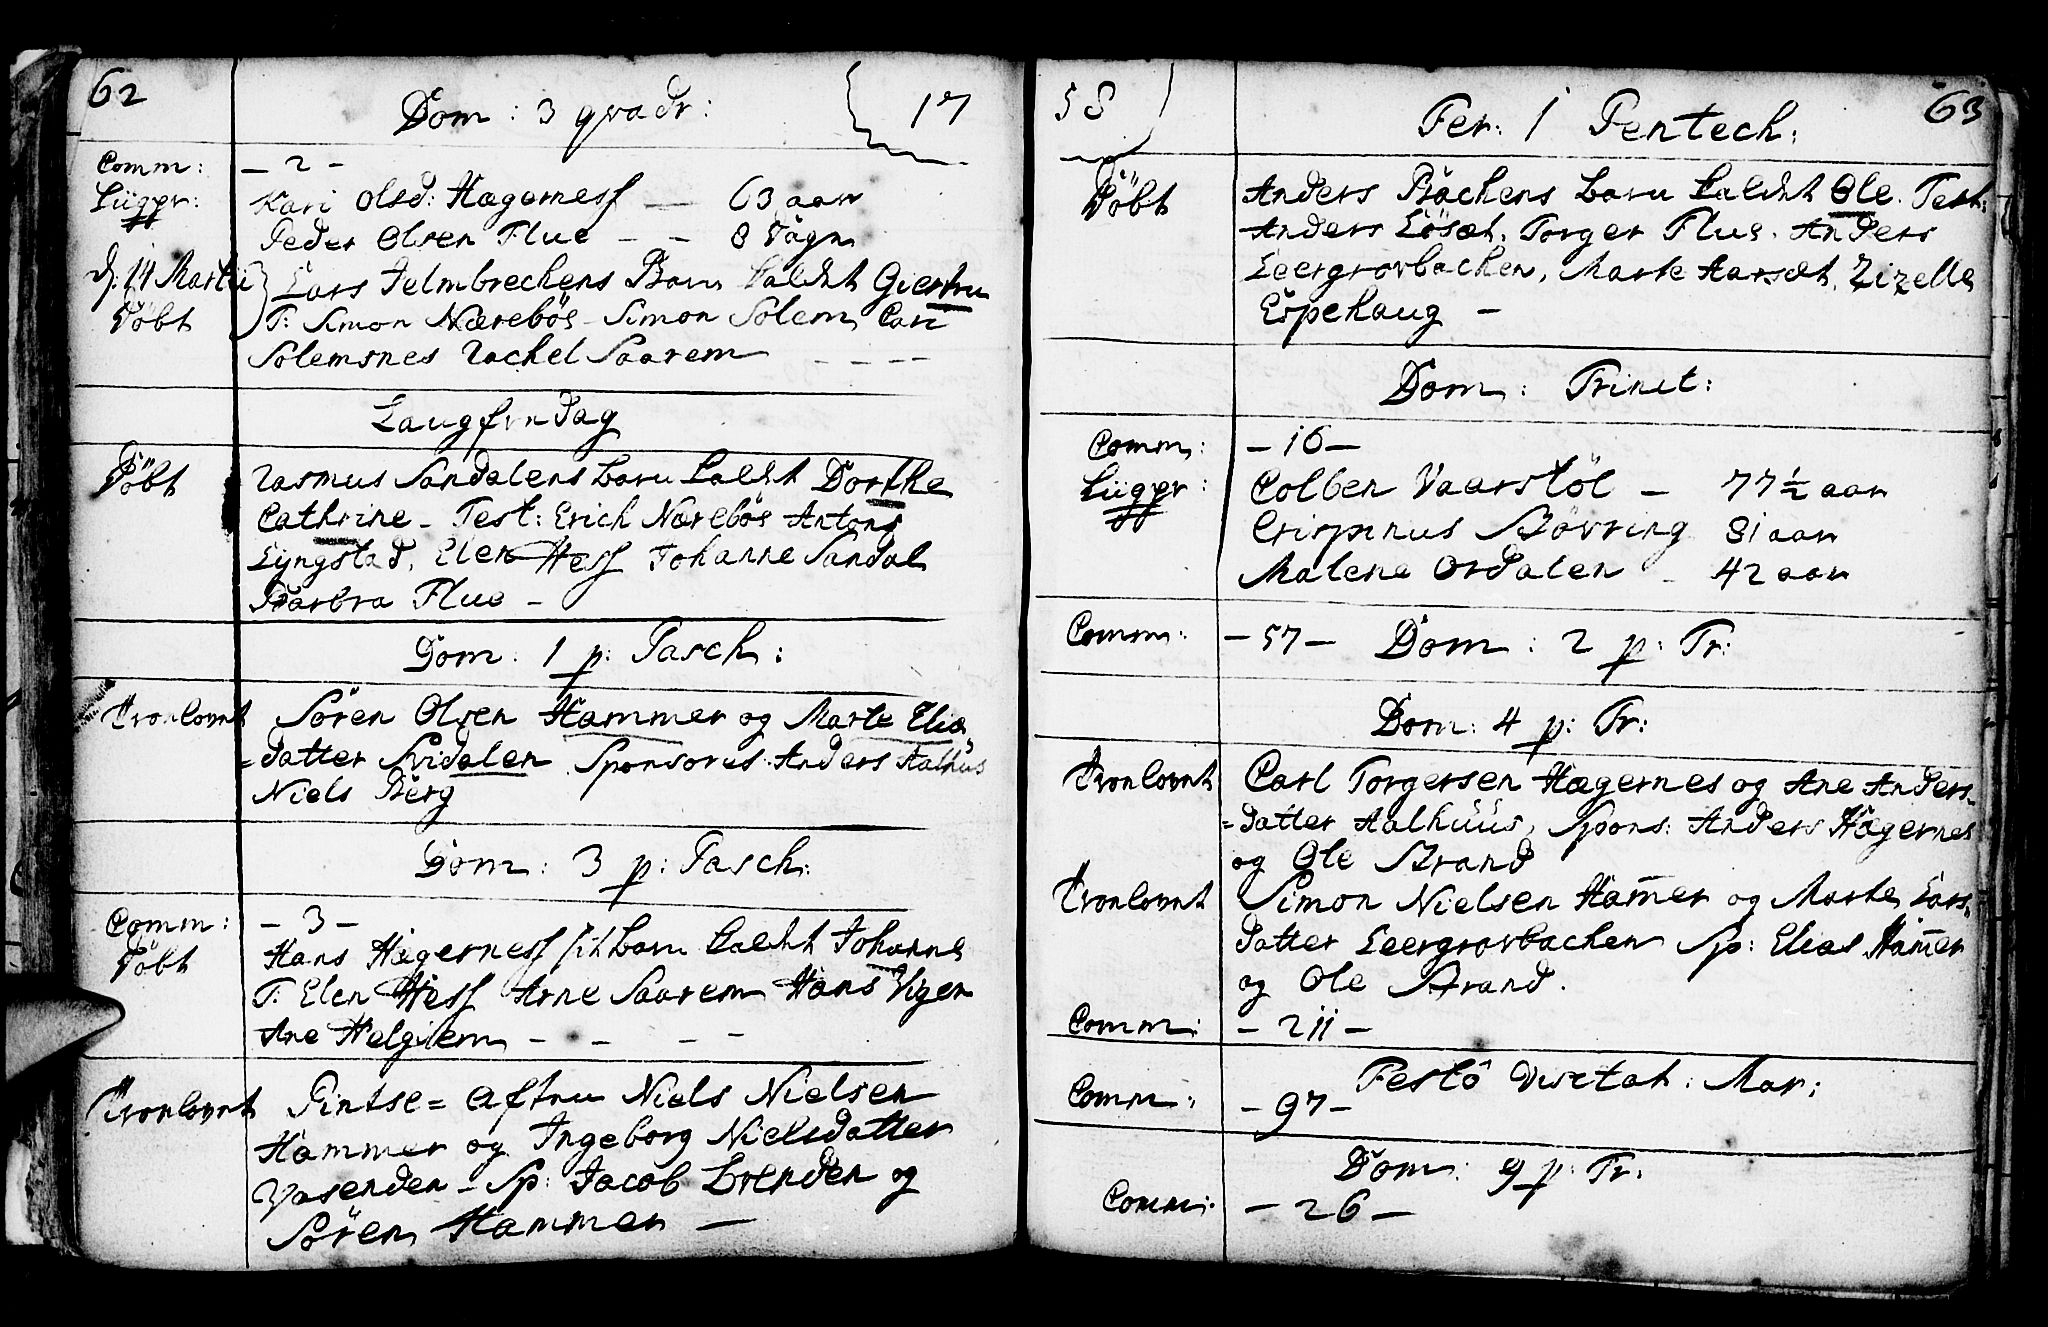 62
Dom: 3 qvadr: 17
Comm: - 2 -
Liigpr: Kari Olsd: Hægerness — 63 aar
Peder Olsen Flue - - 8 Dagr
d. 14 Martii Lars Jelmbrechens Barn kaldet Giertru
Döbt T: Simon Næreböe - Simon Solem Cari
Solemsnes Rachel Saarem - - - -
Langfredag
Döbt Rasmus Sandalens barn kaldet Dorthe
Cathrine - Test: Erich Nærebös Antons
Lyngstad, Elen Hess Johanne Sandal
Barbra Flue -
Dom: 1 p: Pasch:
Trovlovet Sören Olsen Hammer og Marte Elia
=datter Svidalen Sponsores Anders Aalhus
Niels Berg
Dom: 3 p: Pasch:
Comm: - 3 -
Döbt Hans Hægerness sit barn kaldet Johanne
T: Elen Hess Arne Saarem Hans Viger
Ane Helgilem - - - -
Trovlovet Pintse= aften Niels Nielsen
Hammer og Ingeborg Nielsdatter
Vasenden - Sp: Jacob Brenden og
Sören Hammer —
58 63
Fer: 1 Pentech:
Döbt Anders Bachens barn kaldet Ole. Test:
Anders Lösæt, Torger Flue. Anders
Leergrovbachen, Marte Aarsæt, Zizelle
Espehaug -
Dom: Trinit:
Comm: - 16 -
Liigpr: Colben Vaarstöl - 77 ½ aar
Crispinus Stövring 81 aar
Malene Ordalen - 42 aar
Comm: - 57 - Dom: 2 p: Tr:
Dom: 4 p: Tr:
Trovlovet Carl Torgersen Hægernes og Ane Anders-
=datter Aalhuus, Spons: Anders Hægernes
og Ole Strand
Trovlovet Simon Nielsen Ham̄er og Marte Lars-
datter Leergrovbachen Sp: Elias Ham̄er
og Ole Strand.
Comm: - 211 -
Festo Visitat: Mar:
Comm: - 97 -
Dom: 9 p: Tr:
Comm: - 26 -